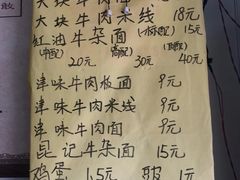 大块牛肉面
大块牛肉米线 18元
红油牛杂面 (小标配) 15元
(中配) (高配)
20元 30元 40元
津味牛肉板面 9元
津味牛肉米线 9元
津味牛肉面 9元
昆记牛杂面 15元
鸡蛋 1.5元 1元